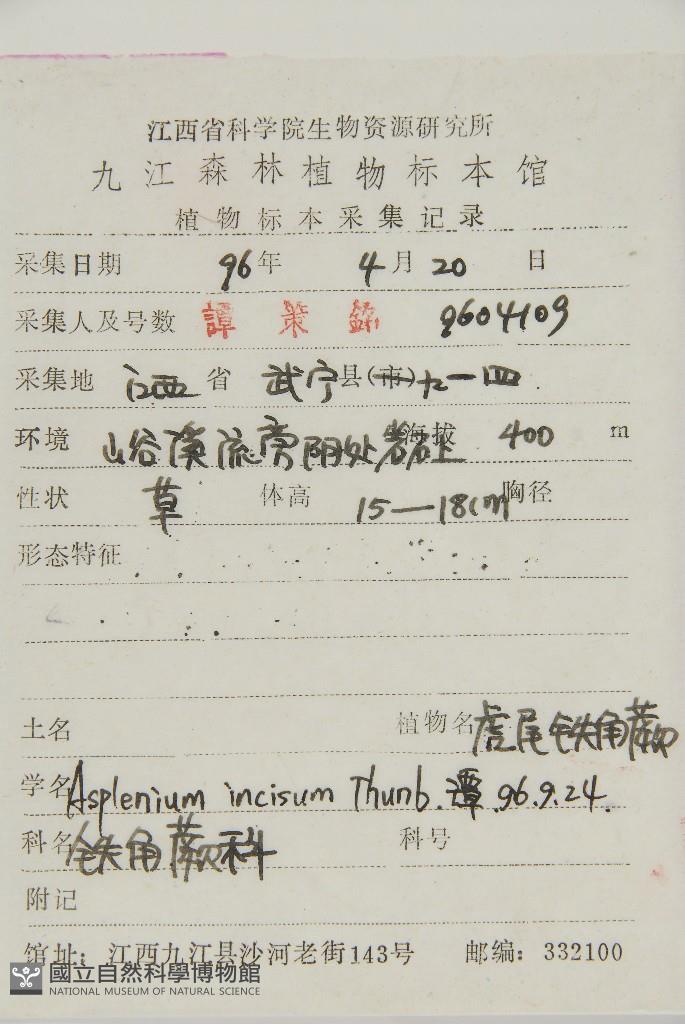 江西省科学院生物资源研究所
九江森林植物标本馆
植物标本采集记录
采集日期 96年 4月 20 日
采集人及号数 譚策銘 9604109
采集地 江西 省 武宁 县(市)九一四
环境 山谷溪流旁阴处岩石上 海拔 400 m
性状 草 体高 15—18cm 胸径
形态特征
土名 植物名 虎尾铁角蕨
学名 Asplenium incisum Thunb. 譚 96.9.24.
科名 铁角蕨科 科号
附记
馆址: 江西九江县沙河老街143号 邮编: 332100
國立自然科學博物館
NATIONAL MUSEUM OF NATURAL SCIENCE